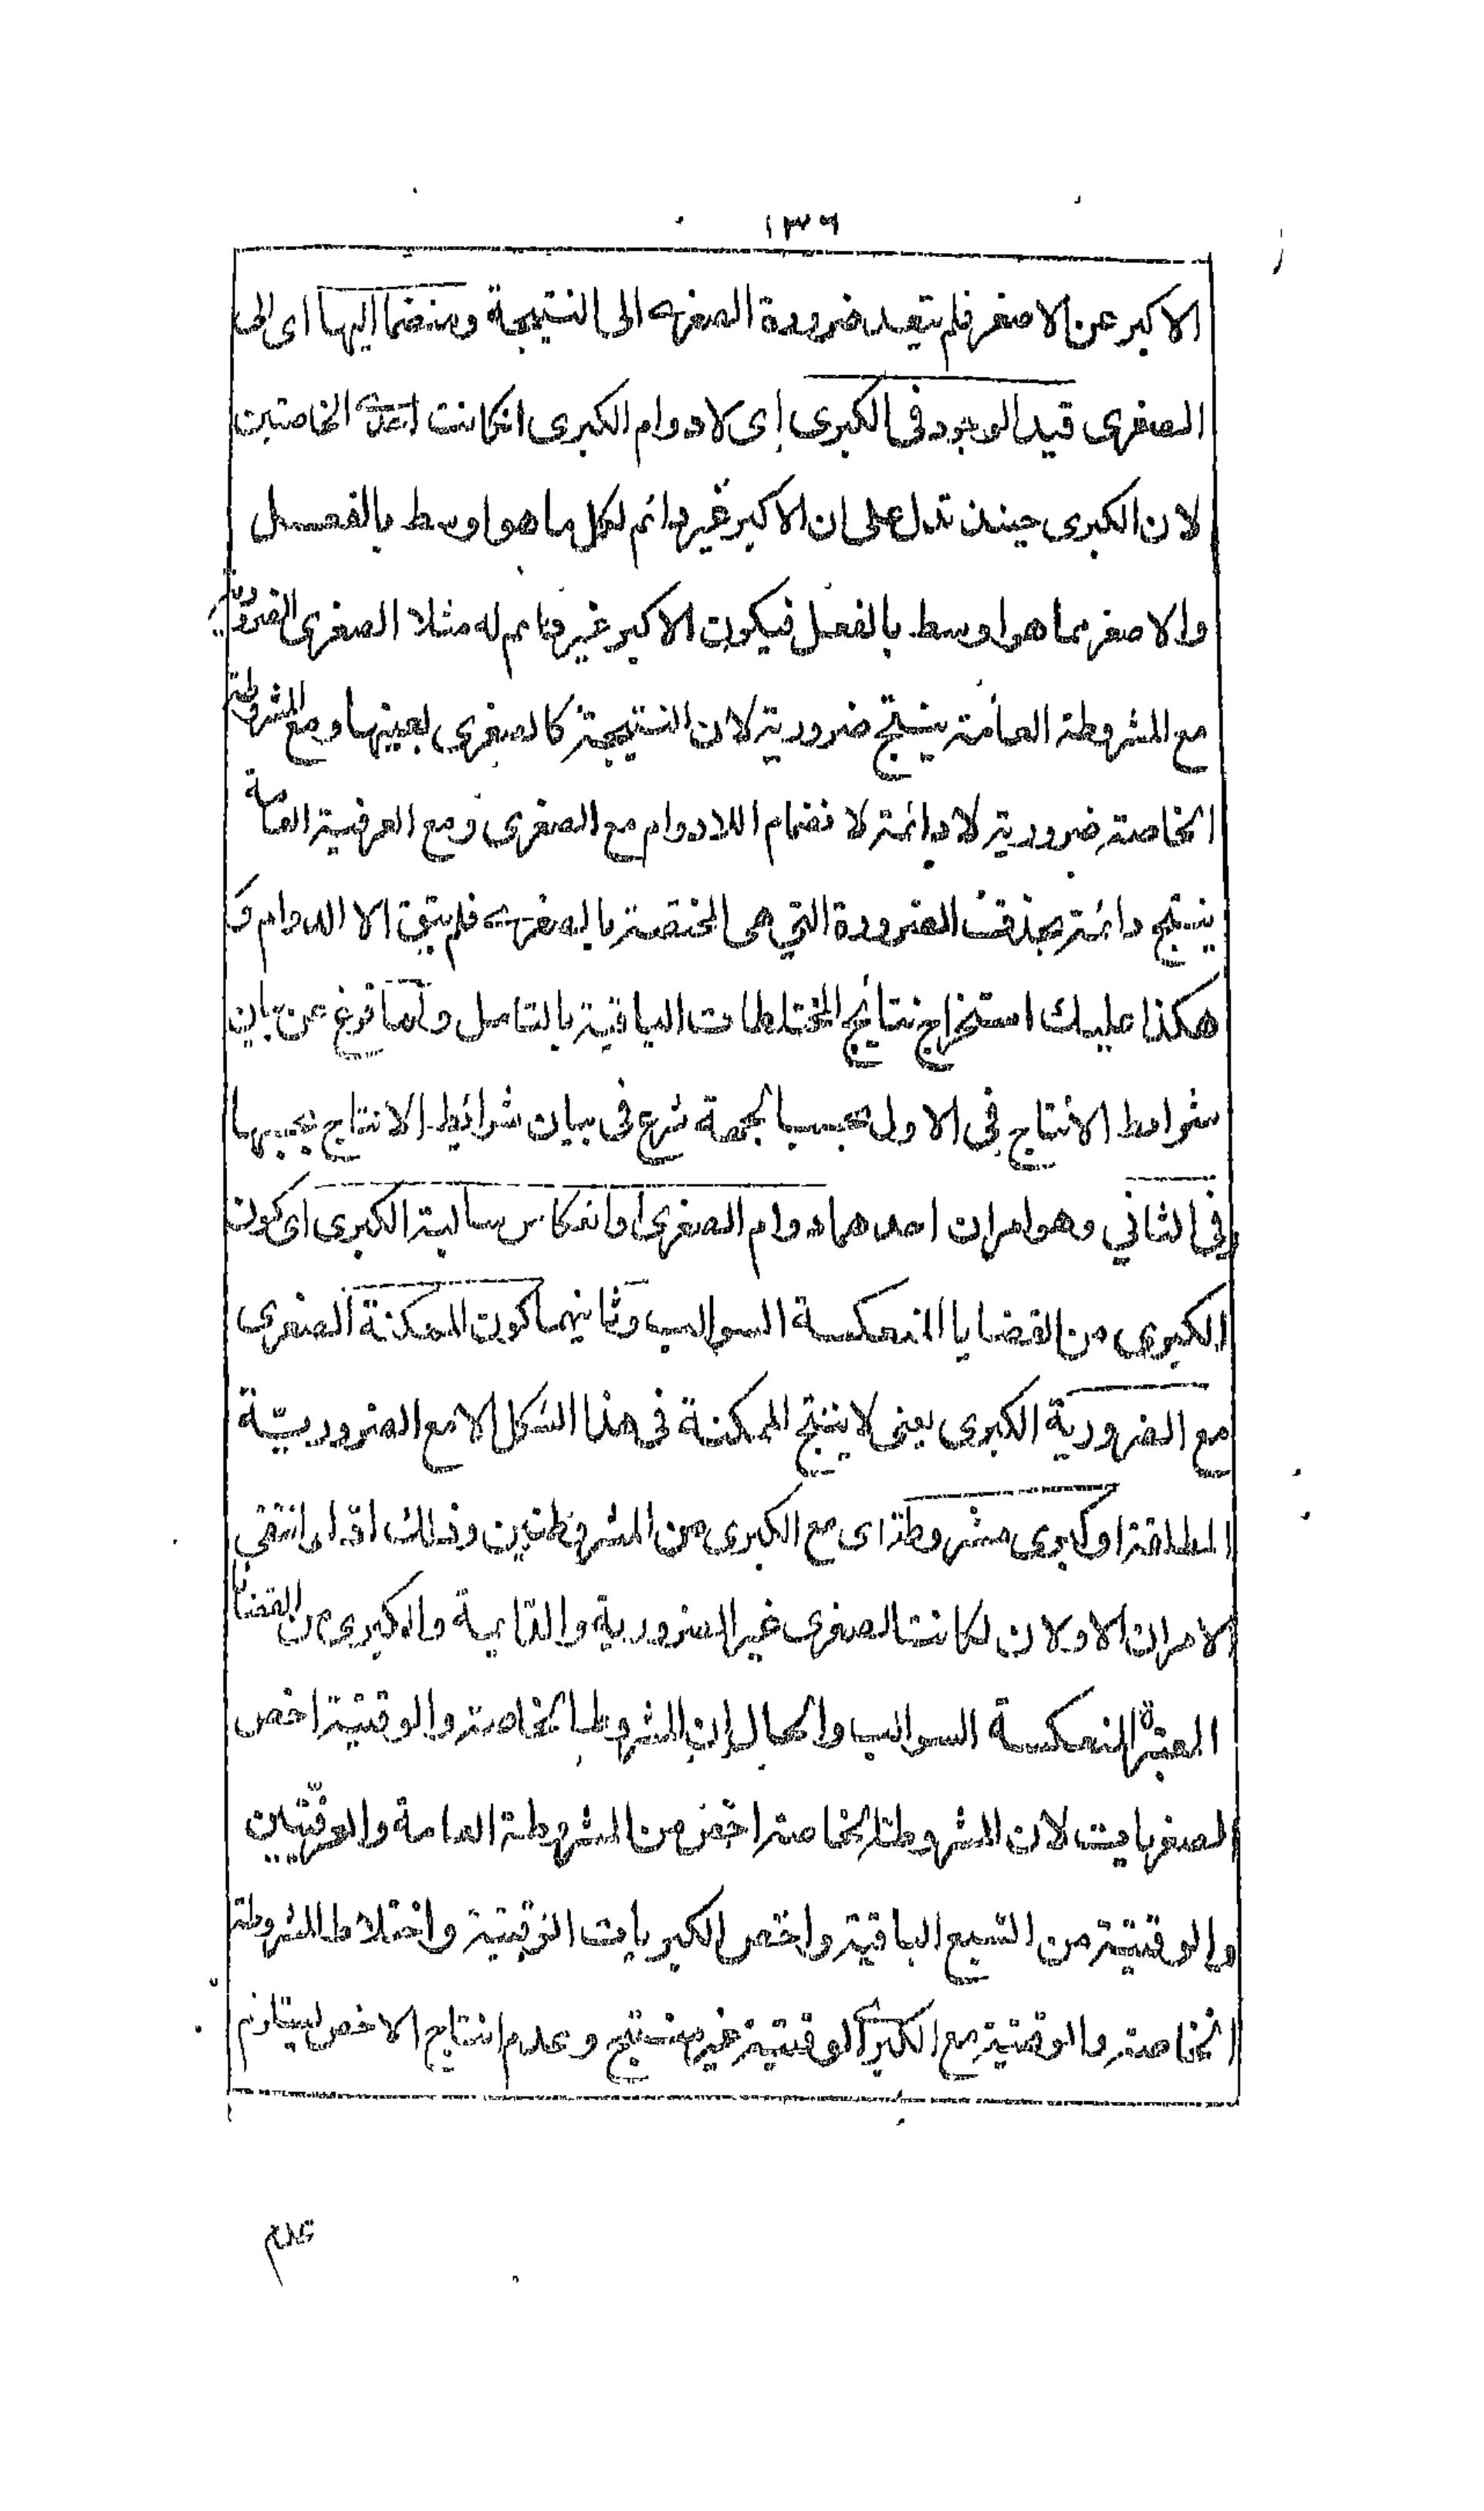 ١٣٦
الاكبر عن الاصغر فلم يتعد ضرورة الصغرى الى النتيجة ومنضما اليها اى الى
الصغرى قيد الوجود فى الكبرى اى لادوام الكبرى انكانت احدى الخاصتين
لان الكبرى حينئذ تدل على ان الاكبر غير دائم لكل ما هو اوسط بالفعل
والاصغر مما هو اوسط بالفعل فيكون الاكبر غير دائم له مثلا الصغرى الضرورية
مع المشروطة العامة ينتج ضرورية لان النتيجة كالصغرى بعينها ومع المشروطة
الخاصة ضرورية لا دائمة لانضمام اللادوام مع الصغرى ومع العرفية العامة
ينتج دائمة بحذف الضرورة التي هى المختصة بالصغرى فلم يبق الا الدوام و
هكذا عليك استخراج نتايج المختلطات الباقية بالتامل ولما فرغ عن بيان
شرائط الانتاج فى الاول بحسب الجهة شرع فى بيان شرائط الانتاج بحسبها
فى الثاني وهو امران احدهما دوام الصغرى او انعكاس سالبة الكبرى اى كون
الكبرى من القضايا المنعكسة السوالب وثانيهما كون الممكنة الصغرى
مع الضرورية الكبرى يعنى لا ينتج الممكنة فى هذا الشكل الا مع الضرورية
المطلقة او كبرى مشروطة اى مع الكبرى من المشروطتين وذلك اذ لو انتفى
الامران الاولان لكانت الصغرى غير الضرورية والدائمة والكبرى من القضايا
الغير المنعكسة السوالب والحال ان المشروطة الخاصة والوقتية اخص
الصغريات لان المشروطة الخاصة اخص من المشروطة العامة والعرفيتين
والوقتية من السبع الباقية واخص الكبريات الوقتية واختلاط المشروطة
الخاصة والوقتية مع الكبرى الوقتية غير منتج وعدم انتاج الاخص ليستلزم
عدم